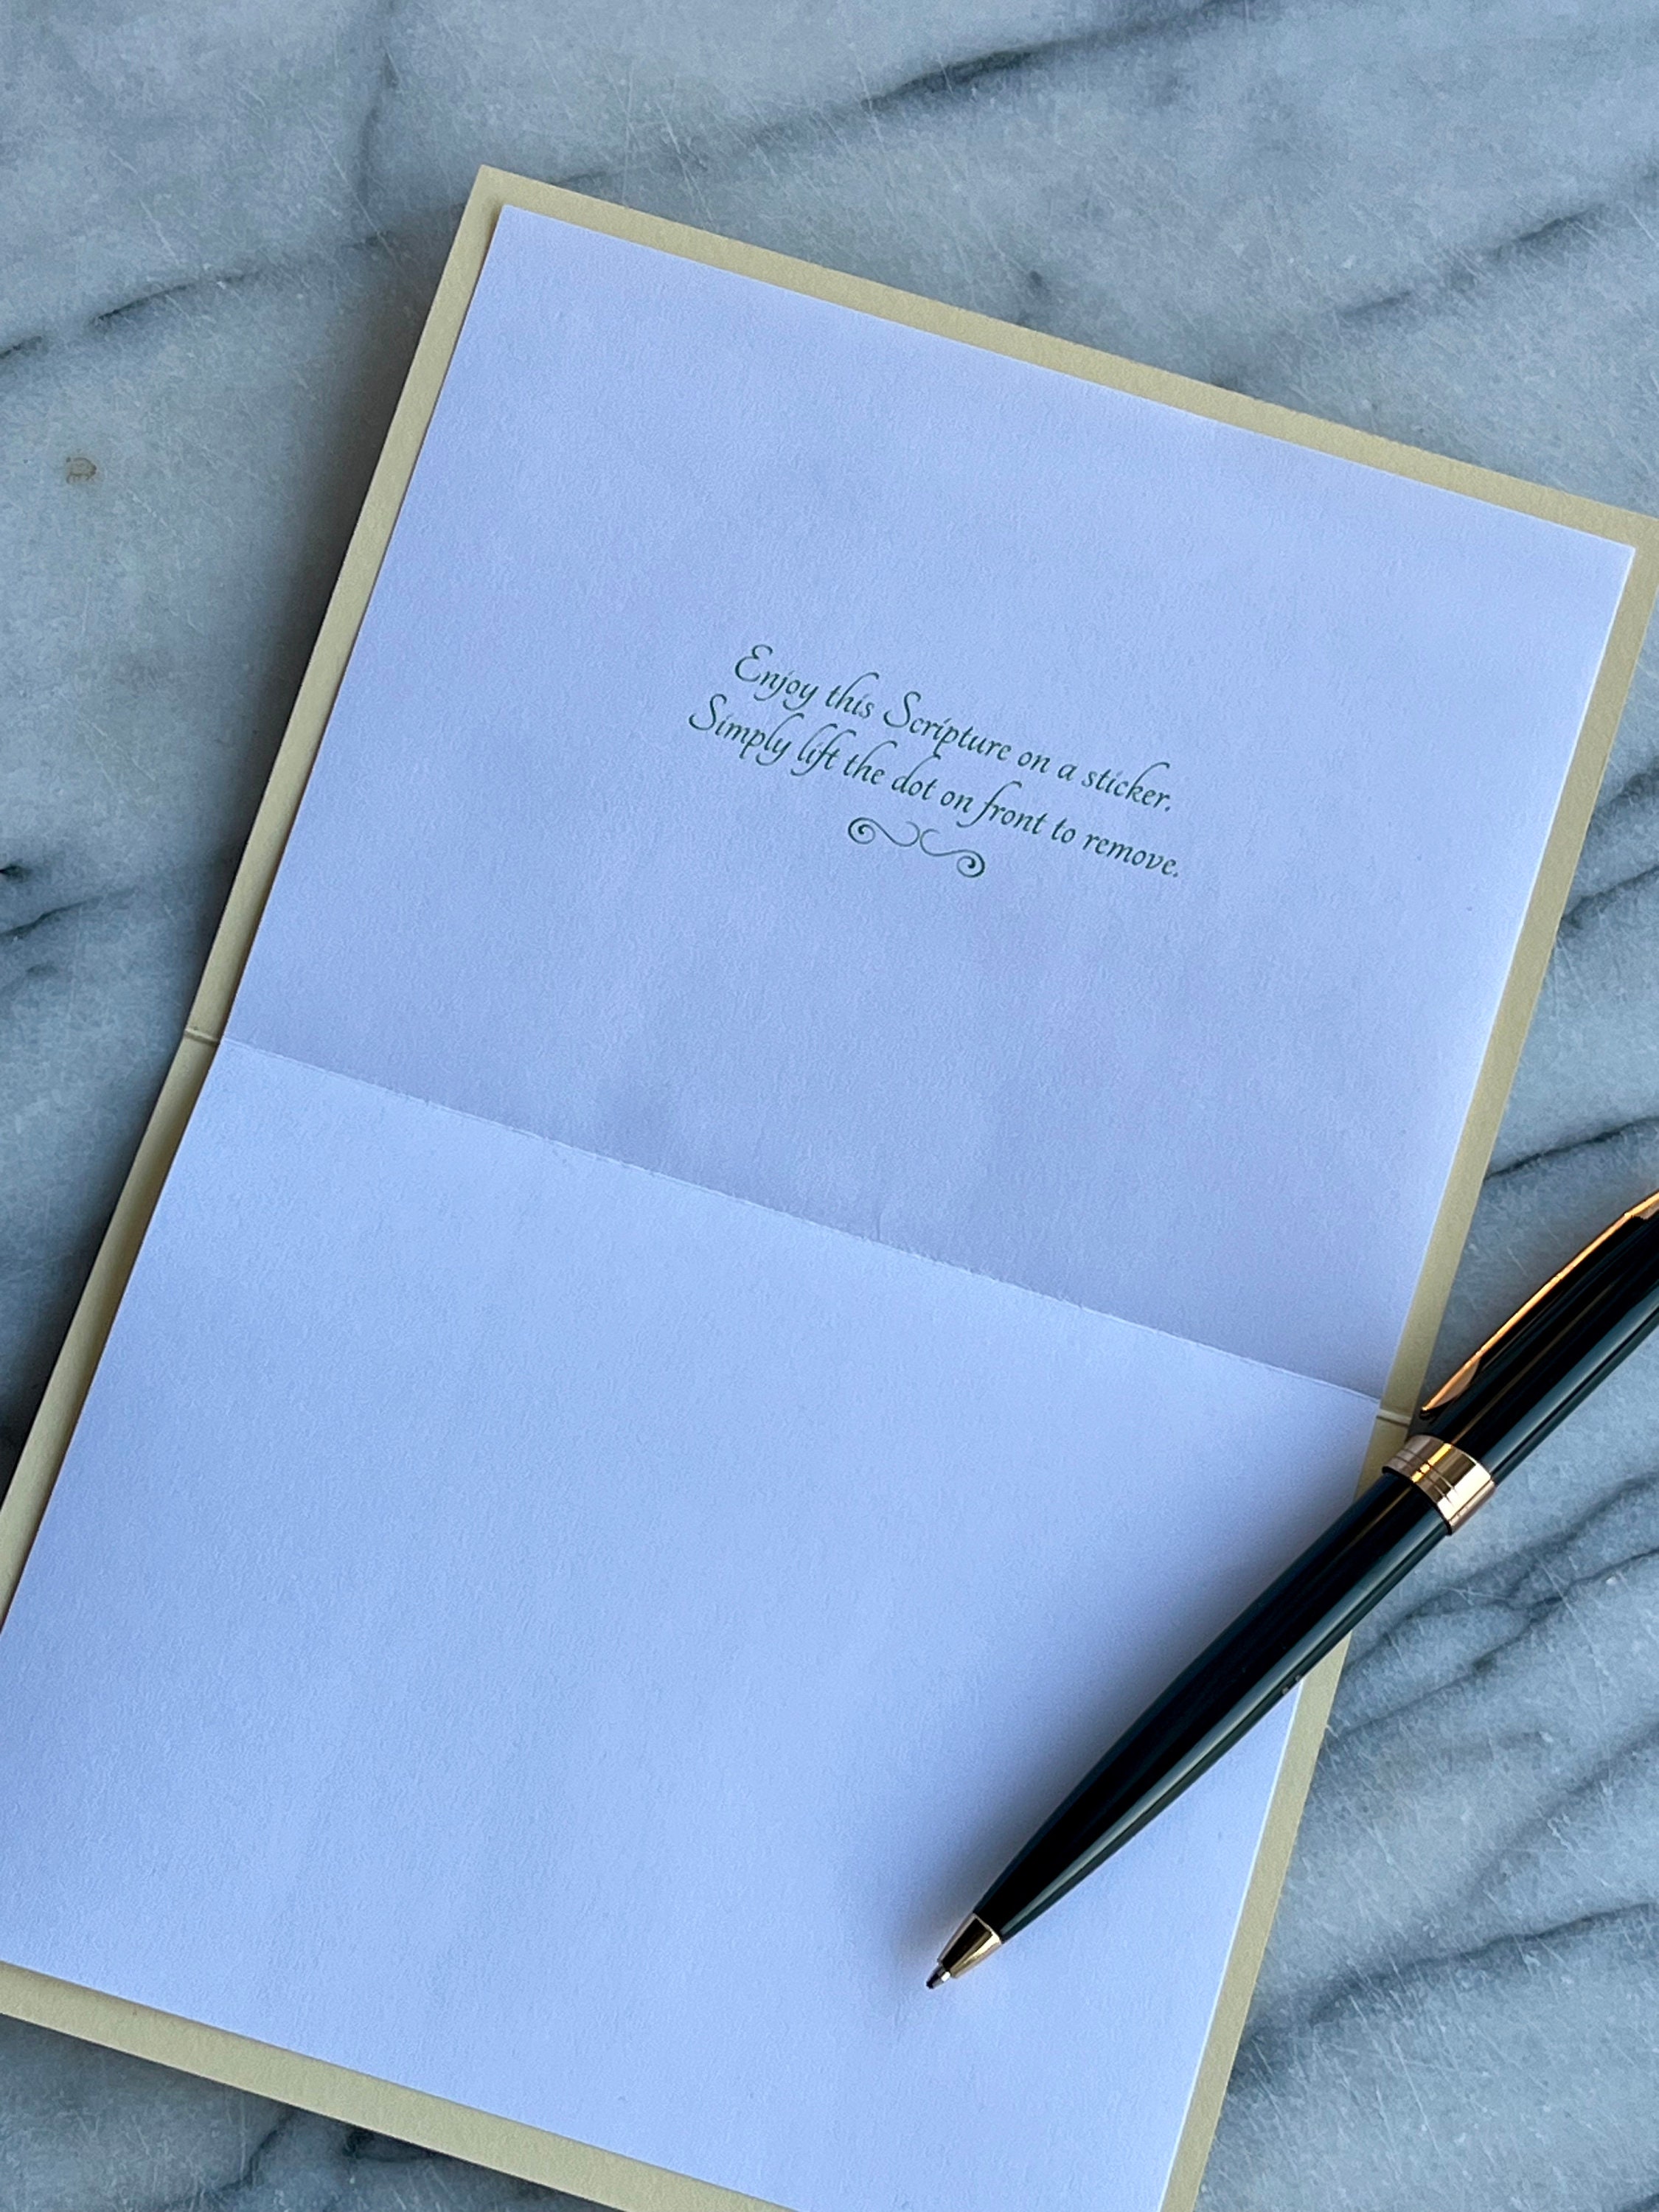 Enjoy this Scripture on a sticker.
Simply lift the dot on front to remove.